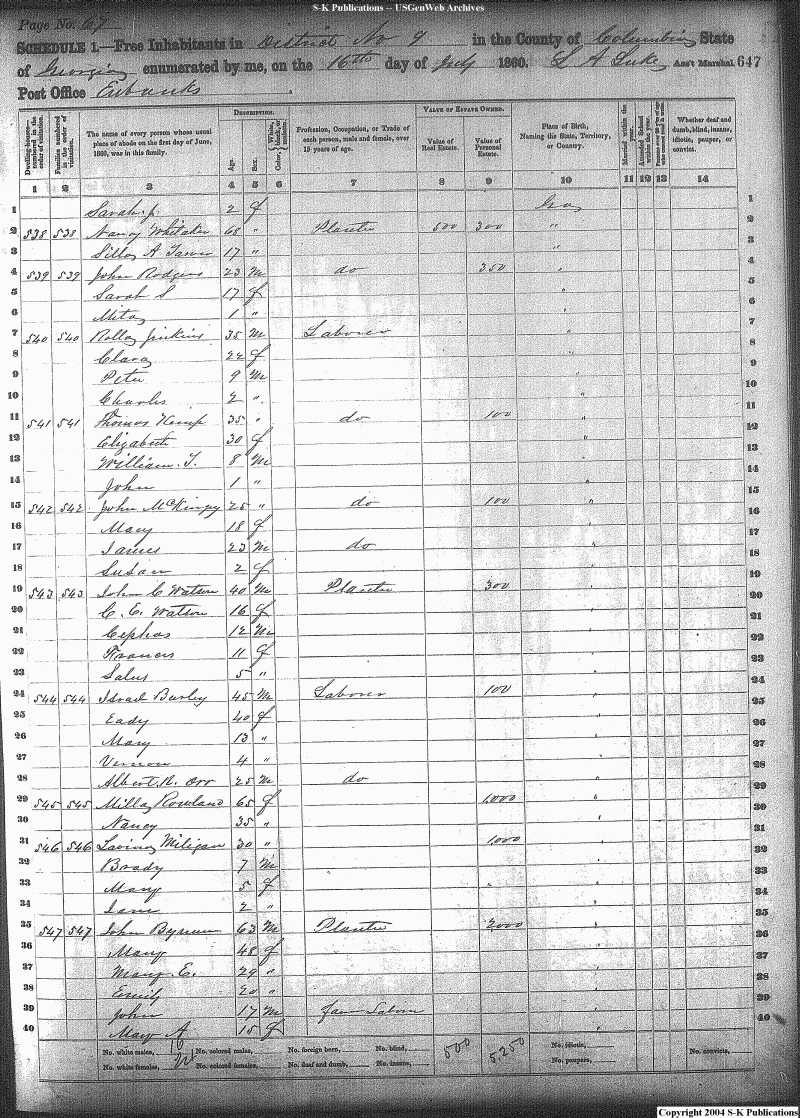 S-K Publications -- USGenWeb Archives
Page No. 67
SCHEDULE 1.—Free Inhabitants in District No 9 in the County of Columbia State
of Georgia enumerated by me, on the 16th day of July 1860. L A Luke Ass't Marshal. 647
Post Office Eubanks
Dwelling-houses—numbered in the order of visitation.
Families numbered in the order of visitation.
The name of every person whose usual place of abode on the first day of June, 1860, was in this family.
DESCRIPTION.
Age.
Sex.
Color, White, black, or mulatto.
Profession, Occupation, or Trade of each person, male and female, over 15 years of age.
VALUE OF ESTATE OWNED.
Value of Real Estate.
Value of Personal Estate.
Place of Birth, Naming the State, Territory, or Country.
Married within the year.
Attended School within the year.
Whether deaf and dumb, blind, insane, idiotic, pauper, or convict.
1 2 3 4 5 6 7 8 9 10 11 12 13 14
1 Sarah J. 2 f Geo 1
2 538 538 Nancy Whitaker 68 " Planter 500 300 " 2
3 A 17 " " 3
4 539 539 John Rodgers 23 m do 350 " 4
5 Sarah S 17 f " 5
6 1 " " 6
7 540 540 Jinkins 35 m Laborer " 7
8 Clara 22 f " 8
9 Peter 9 m 9
10 Charles 2 " " 10
11 541 541 Thomas Kemp 35 " do 100 " 11
12 Elizabeth 30 f " 12
13 William T. 8 m 13
14 John 1 " 14
15 542 542 John McKinney 25 " do 100 " 15
16 Mary 18 f 16
17 James 23 m do " 17
18 Susan 2 f 18
19 543 543 John C Watson 40 m Planter 300 " 19
20 C. E. Watson 16 f " 20
21 Cephas 12 m " 21
22 Francis 11 f " 22
23 5 " 23
24 544 544 Israel Burley 45 m Laborer 100 24
25 Eady 40 f " 25
26 Mary 13 " " 26
27 Vernon 4 " " 27
28 Albert R. Orr 25 m do " 28
29 545 545 Milla Rowland 65 f 1,000 " 29
30 Nancy 35 " 30
31 546 546 Lavina Miligan 30 " 1,000 " 31
32 Brady 7 m " 32
33 Mary 5 f " 33
34 Jane 2 " " 34
35 547 547 John 63 m Planter 2000 " 35
36 Mary 48 f " 36
37 Mary E. 29 " " 37
38 Emily 20 " " 38
39 John 17 m Farm Labor 39
40 Mary A 15 f " 40
No. white males, 16 No. colored males, No. foreign born, No. blind, 500 5,250 No. idiotic, No. convicts,
No. white females, 24 No. colored females, No. deaf and dumb, No. insane, No. paupers,
Copyright 2004 S-K Publications